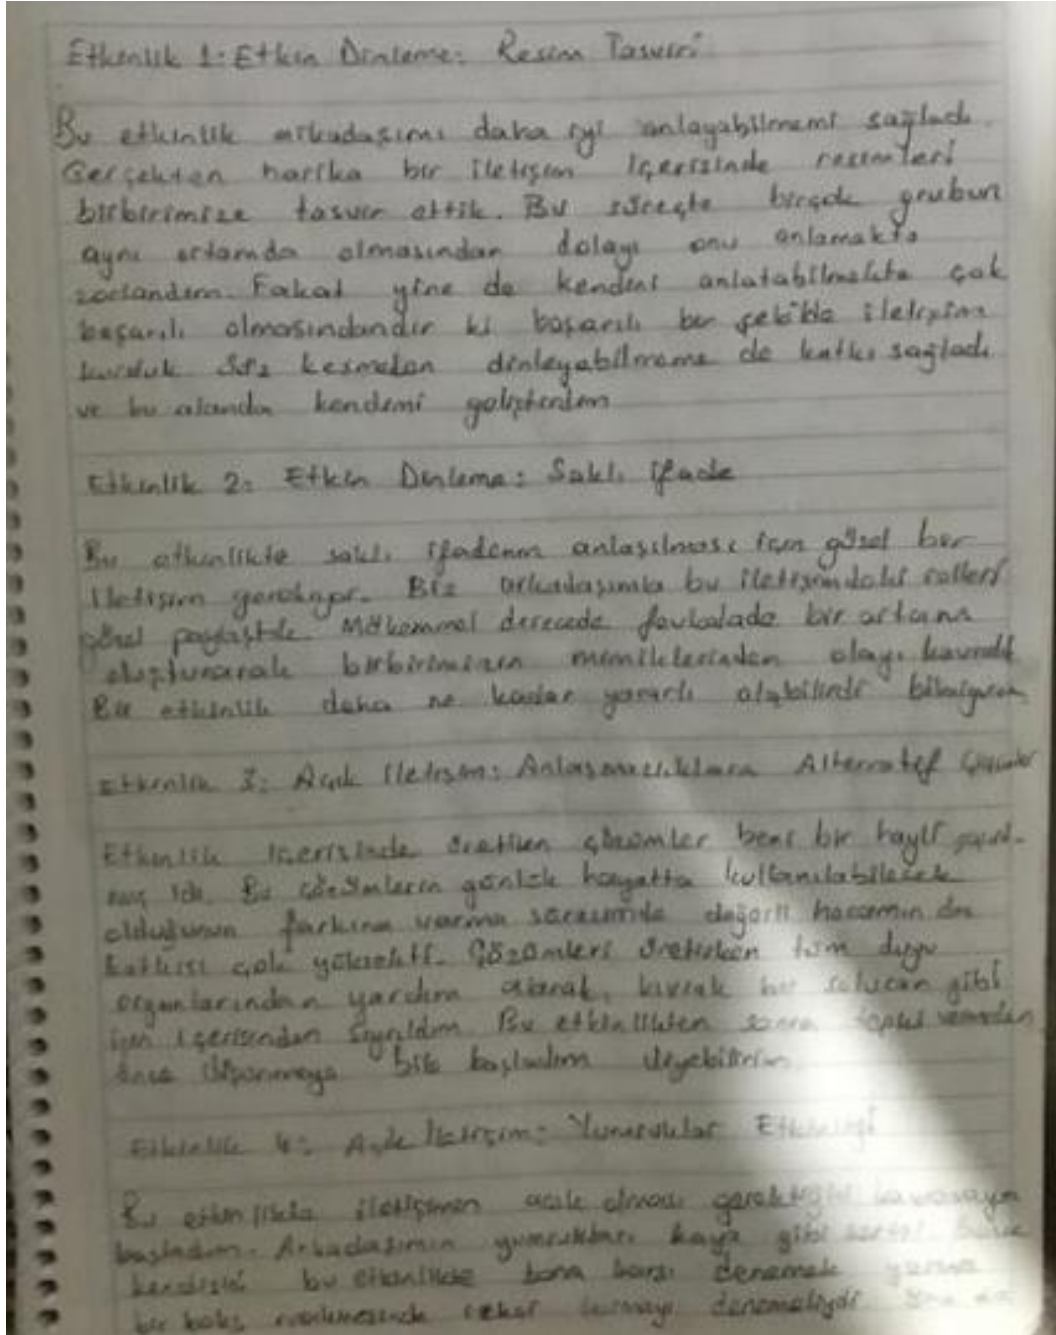 Etkinlik 1: Etkin Dinleme: Resim Tasviri
Bu etkinlik arkadaşımı daha iyi anlayabilmemi sağladı.
Gerçekten harika bir iletişim içerisinde resimleri
birbirimize tasvir ettik. Bu süreçte birçok grubun
aynı ortamda olmasından dolayı onu anlamakta
zorlandım. Fakat yine de kendini anlatabilmekte çok
başarılı olmasındandır ki başarılı bir şekilde iletişim
kurduk. Söz kesmeden dinleyebilmeme de katkı sağladı
ve bu alanda kendimi geliştirdim
Etkinlik 2: Etkin Dinleme: Saklı ifade
Bu etkinlikte saklı ifadenin anlaşılması için güzel bir
iletişim gerekiyor. Biz arkadaşımla bu iletişimdeki rolleri
güzel paylaştık. Mükemmel derecede fevkalade bir ortam
oluşturarak birbirimizin mimiklerinden olayı kavradık
Bu etkinlik daha ne kadar yararlı olabilirdi bilmiyorum
Etkinlik 3: Açık iletişim: Anlaşmazlıklara Alternatif Çözümler
Etkinlik içerisinde üretilen çözümler beni bir hayli
idi. Bu çözümlerin günlük hayatta kullanılabilecek
olduğunun farkına varma sürecimde değerli hocamın da
katkısı çok yüksekti. Çözümleri üretirken tüm duyu
organlarından yardım alarak, kıvrak bir solucan gibi
işin içerisinden sıyrıldım. Bu etkinlikten sonra tepki vermeden
önce düşünmeye bile başladım diyebilirim.
Etkinlik 4: Açık İletişim: Yumruklar Etkinliği
Bu etkinlikte iletişimin açık olması gerektiğini kavramaya
başladım. Arkadaşımın yumrukları kaya gibi
kendisini bu etkinlikte bana karşı denemek yerine
bir boks denemeliydi.